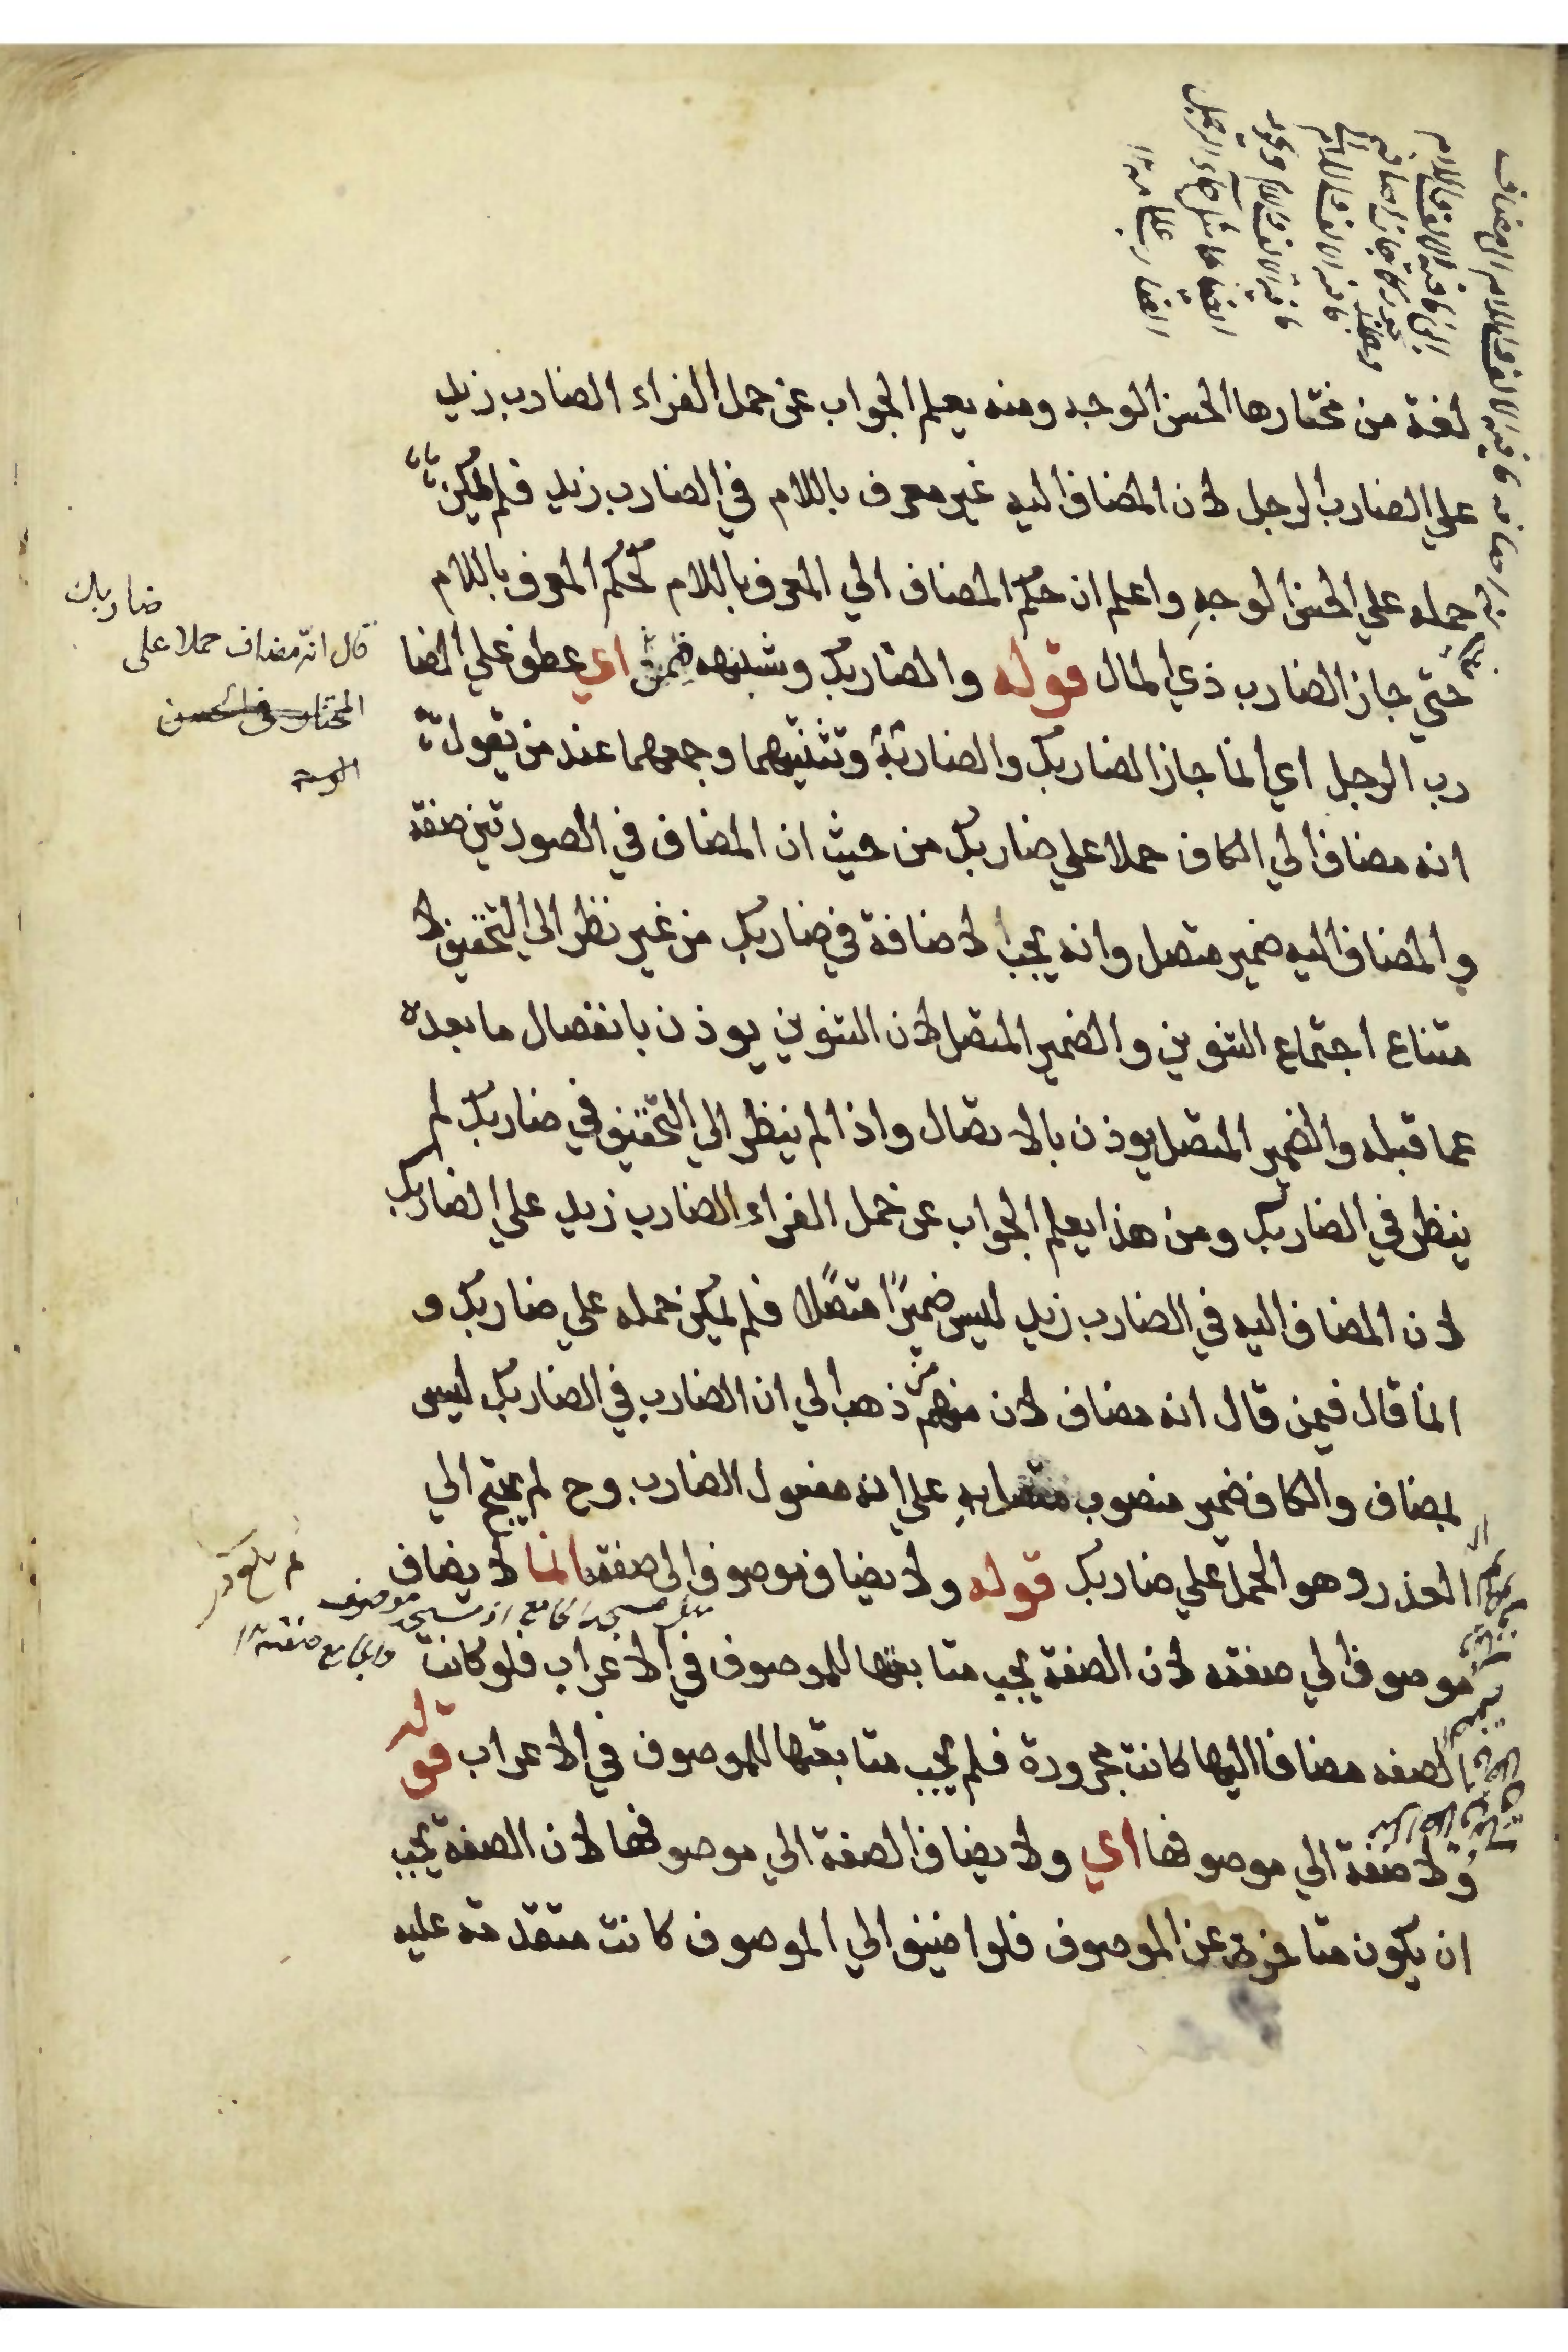 لغة من مختارها الحسن الوجه ومنه يعلم الجواب عن حمل الفراء الضارب زيد
علي الضارب الرجل لان المضاف اليه غير معرف باللام في الضارب زيد فلم يمكن
حمله علي الحسن الوجهِ واعلم ان حكم المضاف الي المعرف باللام كحكم المعرف باللام
حتي جاز الضارب ذي المال قوله والضاربك وشبهه فيمن اي عطف علي الضا
رب الرجل اي انما جاز الضاربك والضاربته وتثنيتهما وجمعهما عند من يقول
انه مضاف الي الكاف حملا علي ضاربك من حيث ان المضاف في الصورتين صفة
والمضاف اليه ضمير متصل وانه يجب الاضافة في ضاربك من غير نظر الي التخفيف لا
متناع اجتماع التنوين والضمير المتصل لان التنوين يوذن بانفصال ما بعده
عما قبله والضمير المتصل يوذن بالاتصال واذا لم ينظر الي التخفيف في ضاربك لم
ينظر في الضاربك ومن هذا يعلم الجواب عن حمل الفراء الضارب زيد علي الضاربك
لان المضاف اليه في الضارب زيد ليس ضميرًا متصلًا فلم يمكن حمله علي ضاربك و
انما قال فيمن قال انه مضاف لان منهم من ذهب الي ان الضارب في الضاربك ليس
بمضاف والكاف ضمير منصوب متصل به علي انه مفعول الضارب وح لم يحتج الي
العذر وهو الحمل علي ضاربك قوله ولا يضاف موصوف الي صفته انما لا يضاف
موصوف الي صفته لان الصفة يجب متابعتها للموصوف في الاعراب فلو كانت
الصفه مضافا اليها كانت مجرورة فلم يجب متابعتها للموصوف في الاعراب قوله
ولا صفة الي موصوفها اي ولا يضاف الصفة الي موصوفها لان الصفة يجب
ان يكون متاخرة عن الموصوف فلو اضيف الي الموصوف كانت متقدمة عليه
ضاربك
قال انه مضاف حملا على
المختار في الحسن
الوجه
مثل مسجد الجامع اذ مسجد موصوف
والجامع صفته ١٢